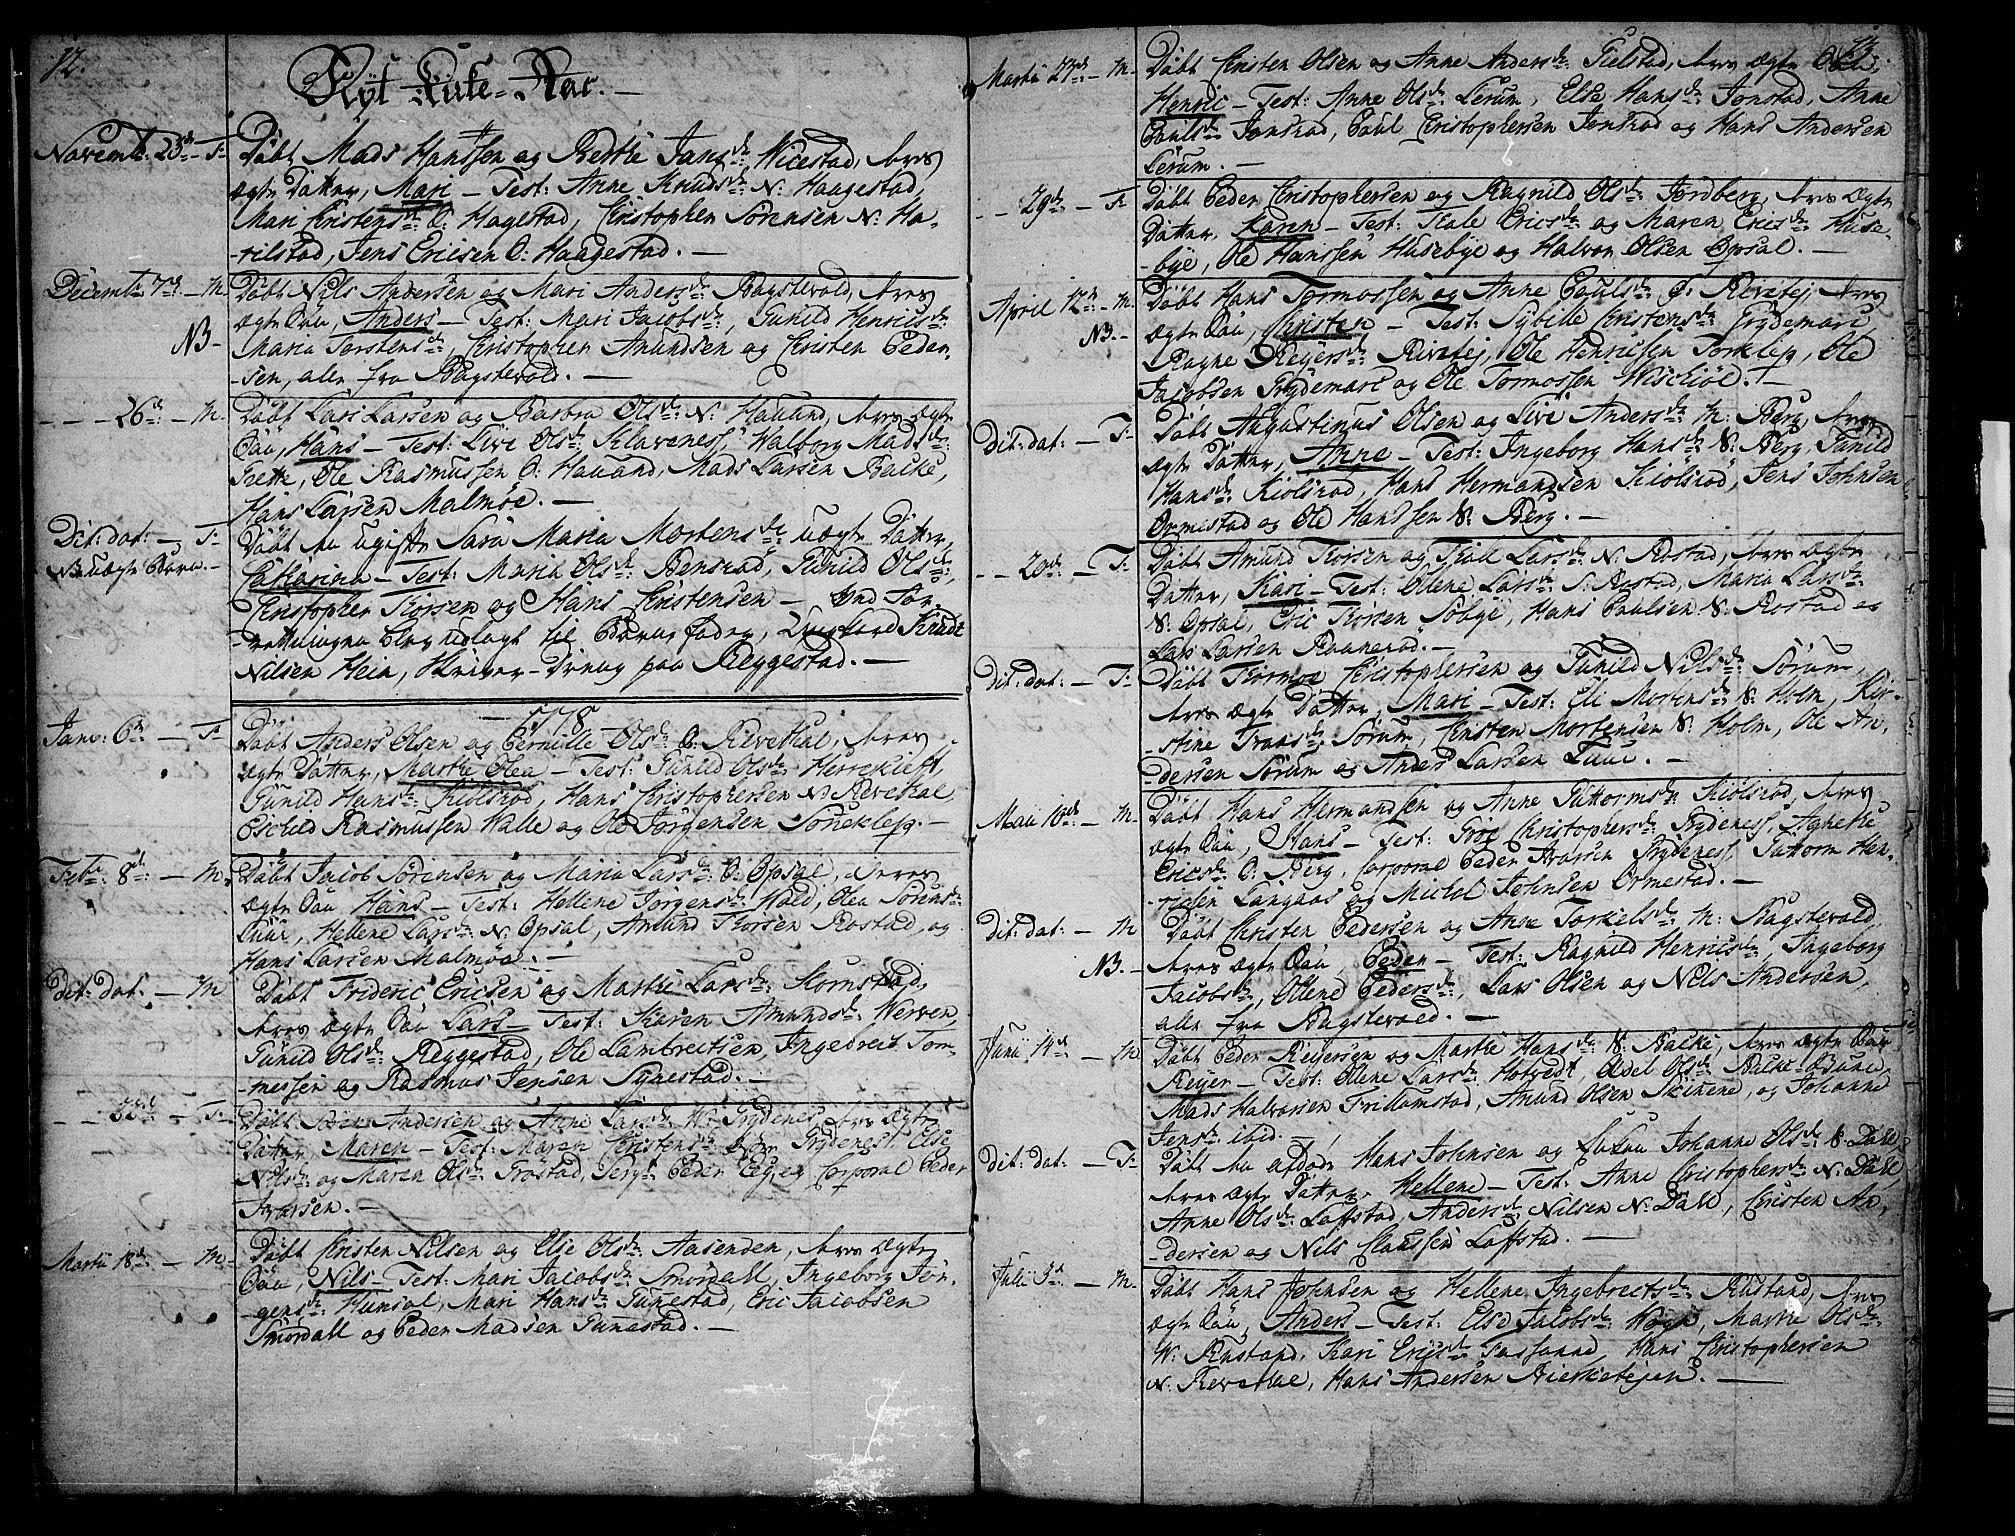 12.
Nyt Kirke-Aar. —
Novemb: 23de — F:
Döbt Mads Hanssen og Berthe Jansdr: Wicestad, hves
ægte Datter, Mari — Test: Anne Knudsdr: N: Haagestad,
Mari Christensdr: O: Hagestad, Christopher Sörensen N: Ha-
-rilstad, Jens Ericsen O: Haagestad. —
Decembr 7de — M.
NB —
Döbt Nils Andersen og Mari Andersdr: Bagstevold, hves
ægte Sön, Anders — Test: Mari Jacobsdr:, Gunild Henricsdr:
Maria Torstensdr:, Christopher Amundsen og Christen Peder-
-sen, alle fra Bagstevold. —
- - - 26de — M.
Döbt Lars Larsen og Barbra Olsdr: N: Hauand, hves ægte
Sön, Hans — Test: Live Olsdr: Klavenes, Walborg Madsdr:
Trette, Ole Rasmussen O: Hauand, Mads Larsen Backe,
Hans Larsen Malmöe. —
Dit: dat: — F:
NB uægte Barn. —
Döbt en ugift Sara Maria Mortensdr: uægte Datter,
Catharina — Test: Maria Olsdr: Bensrad, Gunild Olsdr:,
Christopher Thorsen og Hans Christensen — Ved For-
-retningen blev udlagt til Barnefader, Ungkarl Knudt
Nilsen Hein, tienende Dreng paa Reggestad. —
— 1778 —
Janv: 6te — F:
Döbt Anders Olsen og Pernille Olsdr: O: Revethal, hves
ægte Datter, Marthe Olea — Test: Gunild Olsdr: Herrekleff,
Gunild Hansdr: Kiölsrod, Hans Christophersen N: Revethal
Eschild Rasmussen Walle og Ole Jörgensen Torieklep. —
Febr: 8de: — M.
Döbt Jacob Sörensen og Maria Larsdr: O: Opsal, deres
ægte Sön Hans — Test: Hellene Jörgensdr: Wald, Olea Sörensdr:
Luur, Hellene Larsdr: N: Opsal, Amund Thorsen Rostad, og
Hans Larsen Malmöe. —
Dit: dat: — M
Döbt Frideric Ericsen og Marthe Larsdr: Skornstad,
hves ægte Sön Lars — Test: Karen Amundsdr: Werven,
Gunild Olsdr: Reggestad, Ole Lambrectsen, Ingebreit Tor-
-mossen og Rasmus Jensen Synestad. —
- - 22de — F:
Döbt Sören Andersen og Anne Larsdr: W: Grydenes, hves ægte
Datter, Maren — Test: Maren Christensdr: Grydenes, Else
Nilsdr: og Maren Olsdr: Frostad, Serg: Peder Eeg, og Corporal Peder
Ivarsen. —
Martii 18de: — M.
Döbt Christen Nilsen og Else Olsdr: Aasenden, hves ægte
Sön, Nils — Test: Mari Jacobsdr: Smördall, Ingeborg Jör-
-gensdr: Humsal, Mari Hansdr: Gunestad, Eric Jacobsen
Smördall og Peder Madsen Gunestad. —
13.
Martii 27de — M.
Döbt Christen Olsen og Anne Andersdr: Gielstad, hves ægte Sön,
Henric — Test: Anne Olsdr: Lerum, Else Hansdr: Jonstad, Anne
Paulsdr: Jonsrad, Paul Christophersen Jonsrad og Hans Andersen
Lerum. —
- - 29de — F.
Döbt Peder Christophersen og Ragnild Olsdr: Jordberg, hves ægte
Datter, Karen — Test: Thale Ericsdr: og Maren Ericsdr: Huse-
-bye, Ole Hanssen Husebye og Halvor Olsen Opsal. —
April 12te — M.
NB. —
Döbt Hans Tormossen og Anne Paulsdr: O: Rivetej, hves
ægte Sön, Christen — Test: Sybille Christensdr: Grydemari,
Ragne Reyersdr: Rivetej, Ole Henricsen Torklep, Ole
Jacobsen Grydemari og Ole Tormossen Wischiöl. —
Dit: dat: — F:
Döbt Augustinus Olsen og Live Andersdr: M: Berg, hves
ægte Datter, Anne — Test: Ingeborg Hansdr: N: Berg, Gunild
Hansdr: Kiölsrod, Hans Hermandsen Kiölsrod, Jens Johnsen
Ormestad og Ole Hanssen N: Berg. —
- - 20de — F:
Döbt Amund Thorsen og Thale Larsdr: N: Rostad, hves ægte
Datter, Kari — Test: Ollene Larsdr: S: Rostad, Maria Larsdr:
N: Opsal, Eric Thorsen Solbye, Hans Paulsen N: Rostad og
Lars Larsen Raanerod. —
Dit: dat: — F:
Döbt Thormoe Christophersen og Gunild Nilsdr: Sörum,
hves ægte Datter, Mari — Test: Eli Mortensdr: N: Holm, Kir-
-stine Fransdr: Sörum, Christen Mortensen N: Holm, Ole An-
-dersen Sörum og Anders Larsen Luur. —
Maii 10de: — M.
Döbt Hans Hermandsen og Anne Guttormsdr: Kiölsrod, hves
ægte Sön, Hans — Test: Groe Christophersdr: Grydenes, Agnethe
Ericsdr: O: Berg, Corporal Peder Ivarsen Grydenes, Guttorm Hen-
-ricsen Langaas og Michel Johnsen Ormestad. —
Dit: dat: — M
NB. —
Döbt Christen Pedersen og Anne Torkelsdr: M: Bagstevold
hves ægte Sön Peder — Test: Ragnild Henricsdr:, Ingeborg
Jacobsdr:, Ollene Pedersdr:, Lars Olsen og Nils Andersen,
alle fra Bagstevold. —
Junii 14de — M
Döbt Peder Reyersen og Marthe Hansdr: N: Backe, hves ægte Sön
Reyer — Test: Ollene Larsdr: Hotvedt, Oldel Olsdr: Backe-Brune
Mads Halvorsen Frillumstad, Amund Olsen Skinene, og Johanne
Jensdr: ibid. —
Dit: dat: — F:
Döbt nu afdöde Hans Johnsen og Johanne Olsdr: N: Dahl,
hves ægte Datter, Hellene — Test: Anne Christophersdr: N: Dahl,
Anne Olsdr: Loffstad, Anders Nilsen N: Dahl, Christen An-
-dersen og Nils Clausen Loffstad. —
Julii 3de — M.
Döbt Hans Johnsen og Hellene Ingebrectsdr: Rustand, hves
ægte Sön, Anders — Test: Else Jacobsdr: Wegn, Marthe Olsdr:
W: Rustand, Kari Ericsdr: Fossanne, Hans Christophersen
N: Revethal, Hans Andersen Bierketejen. —